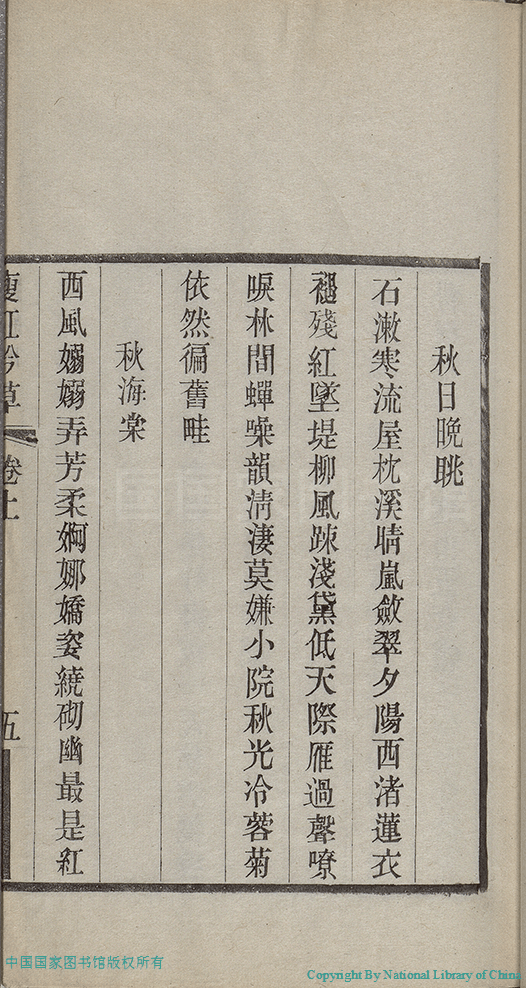 秋日晚眺
石漱寒流屋枕溪晴嵐斂翠夕陽西渚蓮衣
褪殘紅墜堤柳風疎淺黛低天際雁過聲嘹
唳林間蟬噪韻淸淒莫嫌小院秋光冷蓉菊
依然徧舊畦
秋海棠
西風嫋嫋弄芳柔婀娜嬌姿繞砌幽最是紅
瘦紅吟草 卷上 五
中国国家图书馆版权所有
Copyright By National Library of China